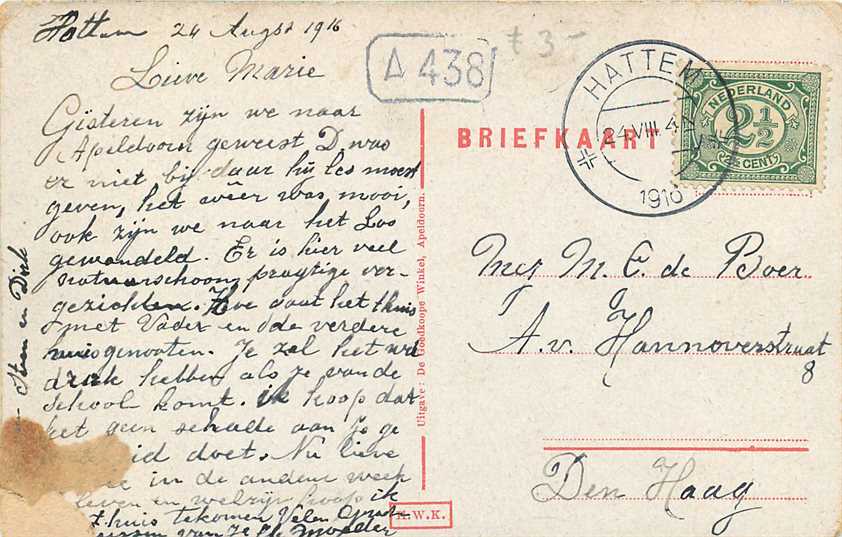 Hattem 24 Augst 1916
Lieve Marie
Gisteren zijn we naar
Apeldoorn geweest D. was
er niet bij daar hij les moest
geven, het wêer was mooi,
ook zijn we naar het Loo
gewandeld. Er is hier veel
natuurschoon, pragtige ver-
gezichten. Hoe gaat het thuis
met Vader en de verdere
huisgenooten. Je zal het wel
druk hebben als je van de
school komt. ik hoop dat
het geen schade aan je ge
doet. Nu lieve
in de andere week
leven en welzijn hoop ik
thuis tekomen Velen
van Je Moeder
en Dirk
Δ 438
t 3-
HATTEM
24.VIII. 4
1916
NEDERLAND
2½
CENTS
BRIEFKAART
Mej M. C. de Boer
A. v. Hannoverstraat
8
Den Haag
Uitgave: De Goedkoope Winkel, Apeldoorn.
W.K.